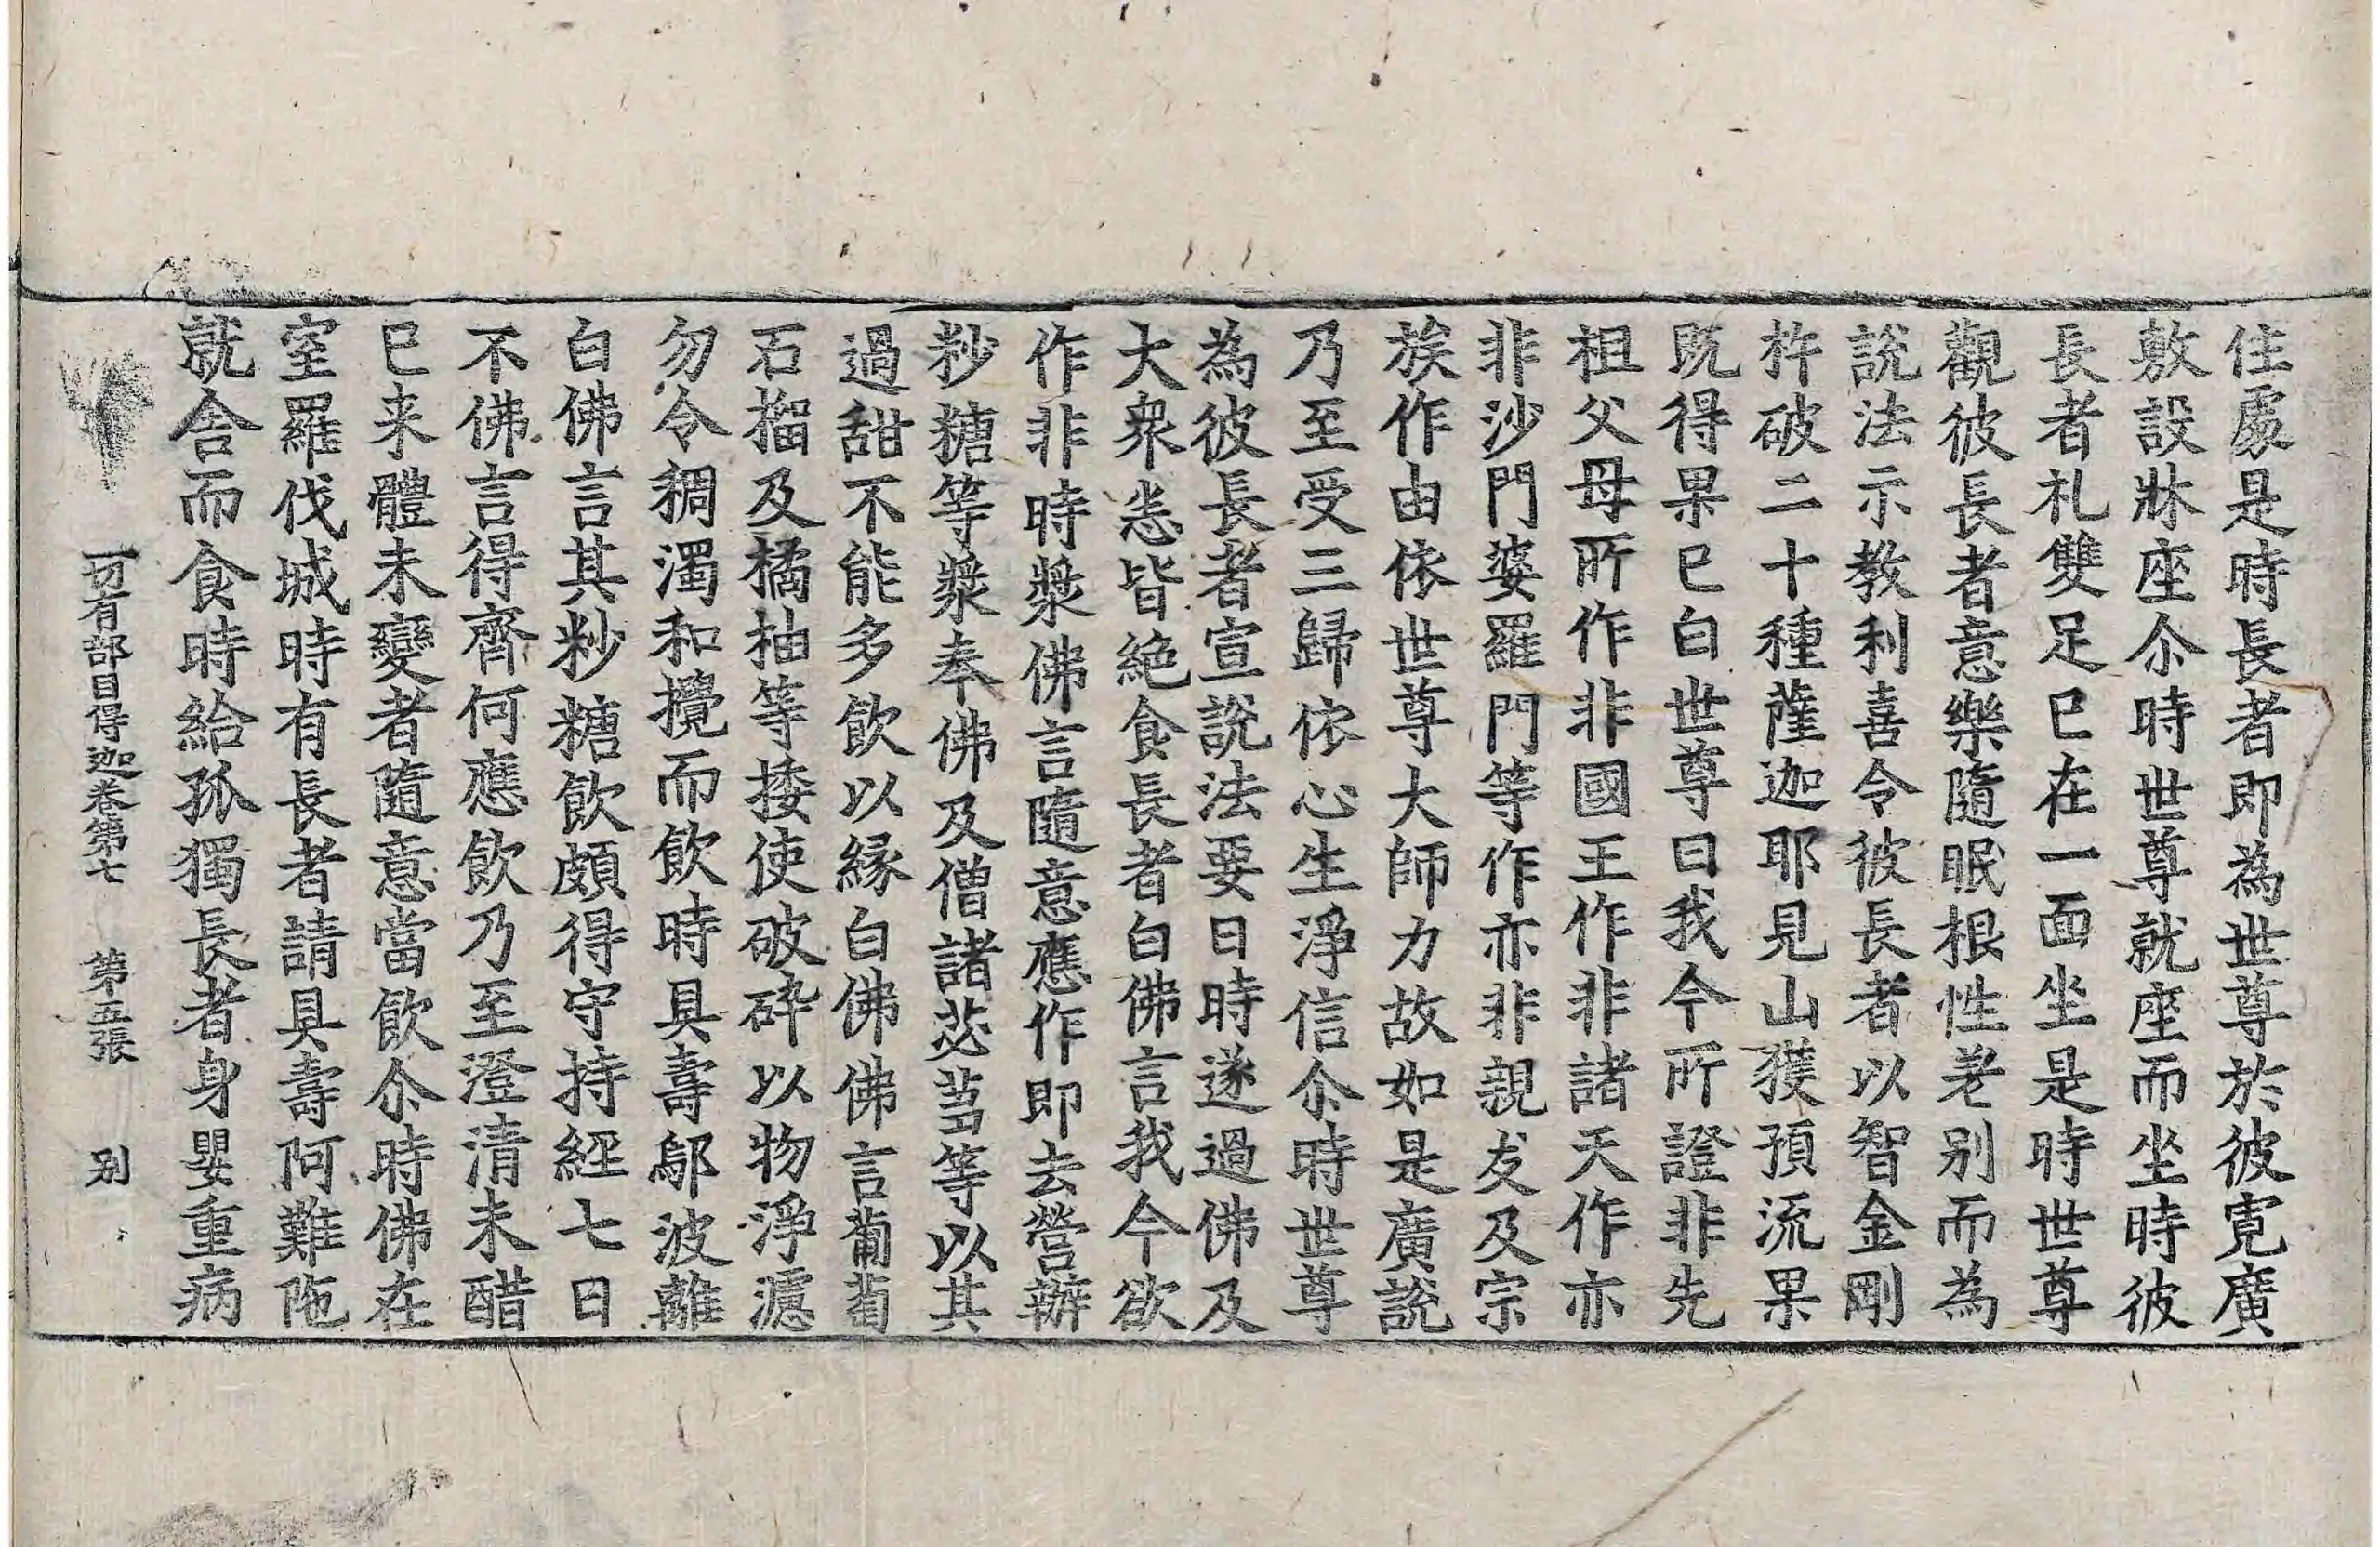 住處是時長者即為世尊於彼寬廣
敷設牀座尒時世尊就座而坐時彼
長者礼雙足已在一面坐是時世尊
觀彼長者意樂隨眠根性差别而為
說法示教利喜令彼長者以智金剛
杵破二十種薩迦耶見山獲預流果
既得果已白世尊曰我今所證非先
祖父母所作非國王作非諸天作亦
非沙門婆羅門等作亦非親友及宗
族作由依世尊大師力故如是廣說
乃至受三歸依心生淨信尒時世尊
為彼長者宣說法要日時遂過佛及
大衆恙皆絶食長者白佛言我今欲
作非時漿佛言隨意應作即去營辦
粆糖等漿奉佛及僧諸苾芻等以其
過甜不能多飲以縁白佛佛言蔔萄
石榴及橘柚等捼使破碎以物淨濾
勿令稠濁和攪而飲時具壽鄔波離
白佛言其粆糖飲頗得守持經七日
不佛言得齊何應飲乃至澄清未醋
已来體未變者隨意當飲尒時佛在
室羅伐城時有長者請具壽阿難陁
就舍而食時給孤獨長者身嬰重病
一切有部目得迦卷第七 第五張 别